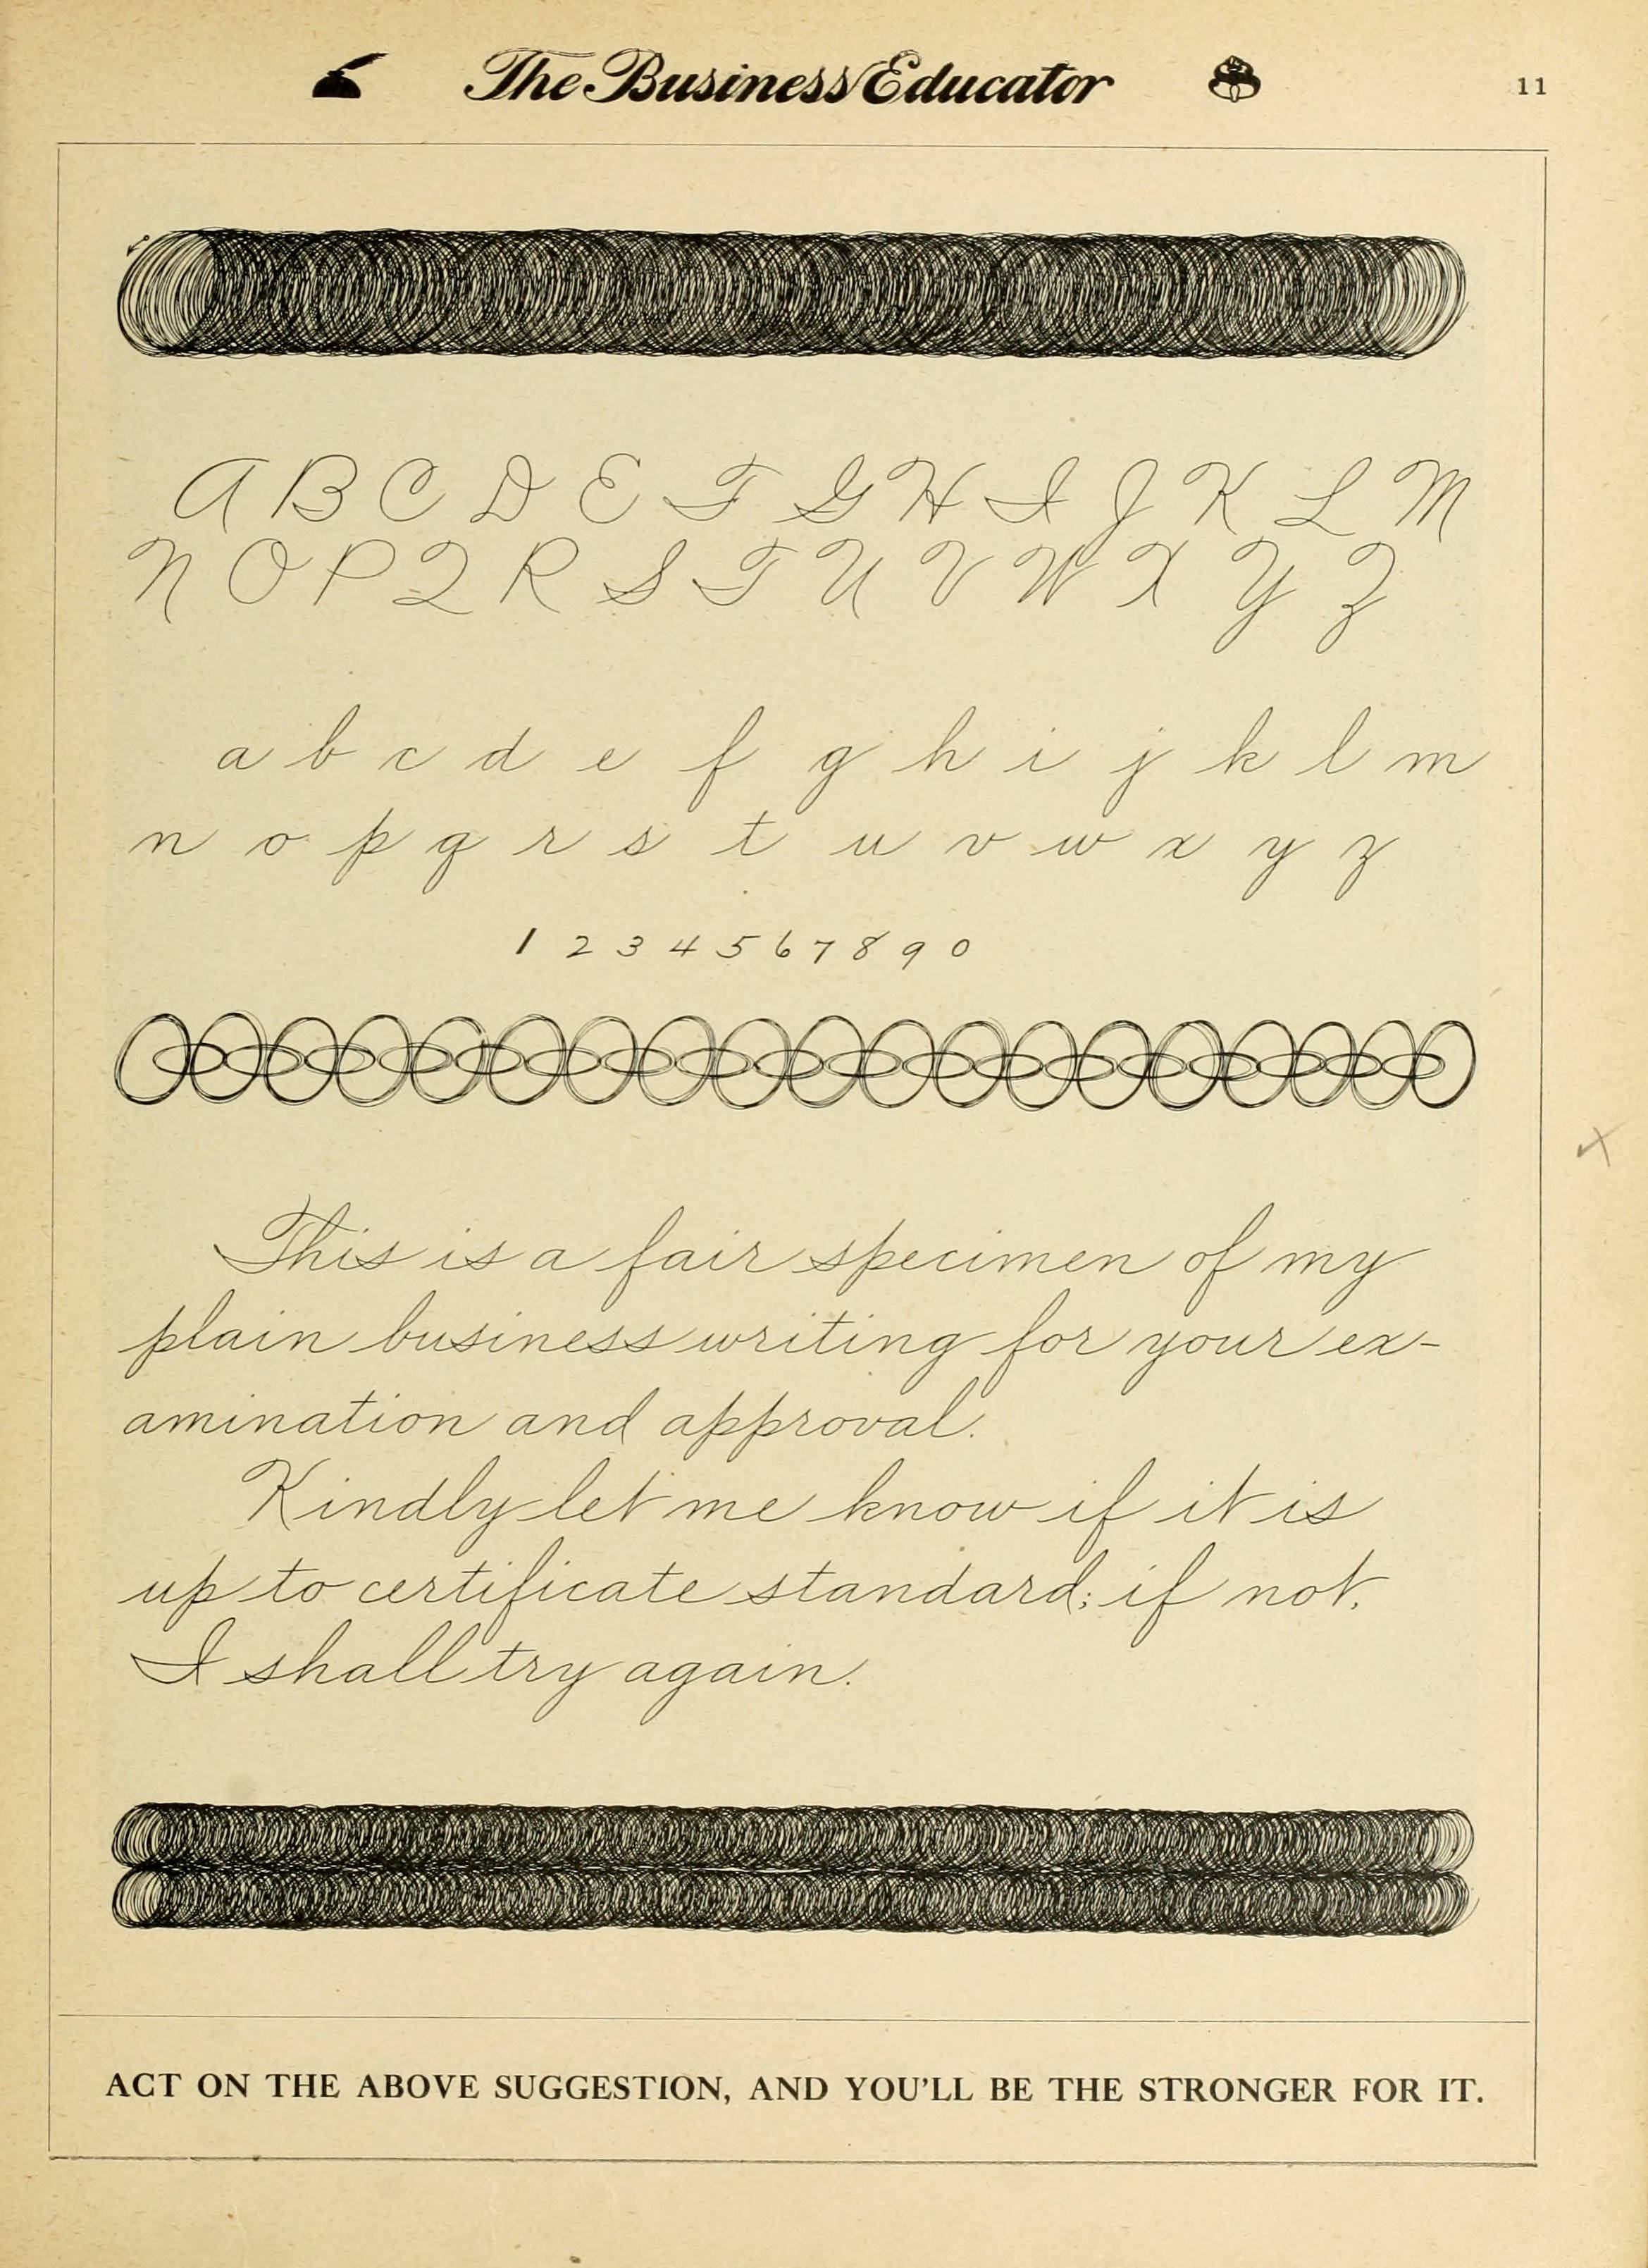 The Business Educator
11
A B C D E F G H I J K L M
N O P Q R S T U V W X Y Z
a b c d e f g h i j k l m
n o p q r s t u v w x y z
1 2 3 4 5 6 7 8 9 0
This is a fair specimen of my
plain business writing for your ex-
amination and approval.
Kindly let me know if it is
up to certificate standard; if not,
I shall try again.
ACT ON THE ABOVE SUGGESTION, AND YOU'LL BE THE STRONGER FOR IT.